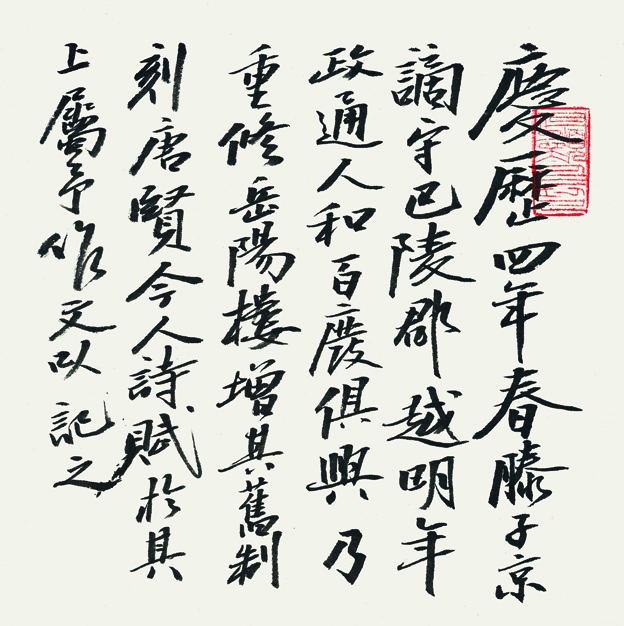 慶歷四年春滕子京
謫守巴陵郡越明年
政通人和百廢俱興乃
重修岳陽樓增其舊制
刻唐賢今人詩賦於其
上屬予作文以記之